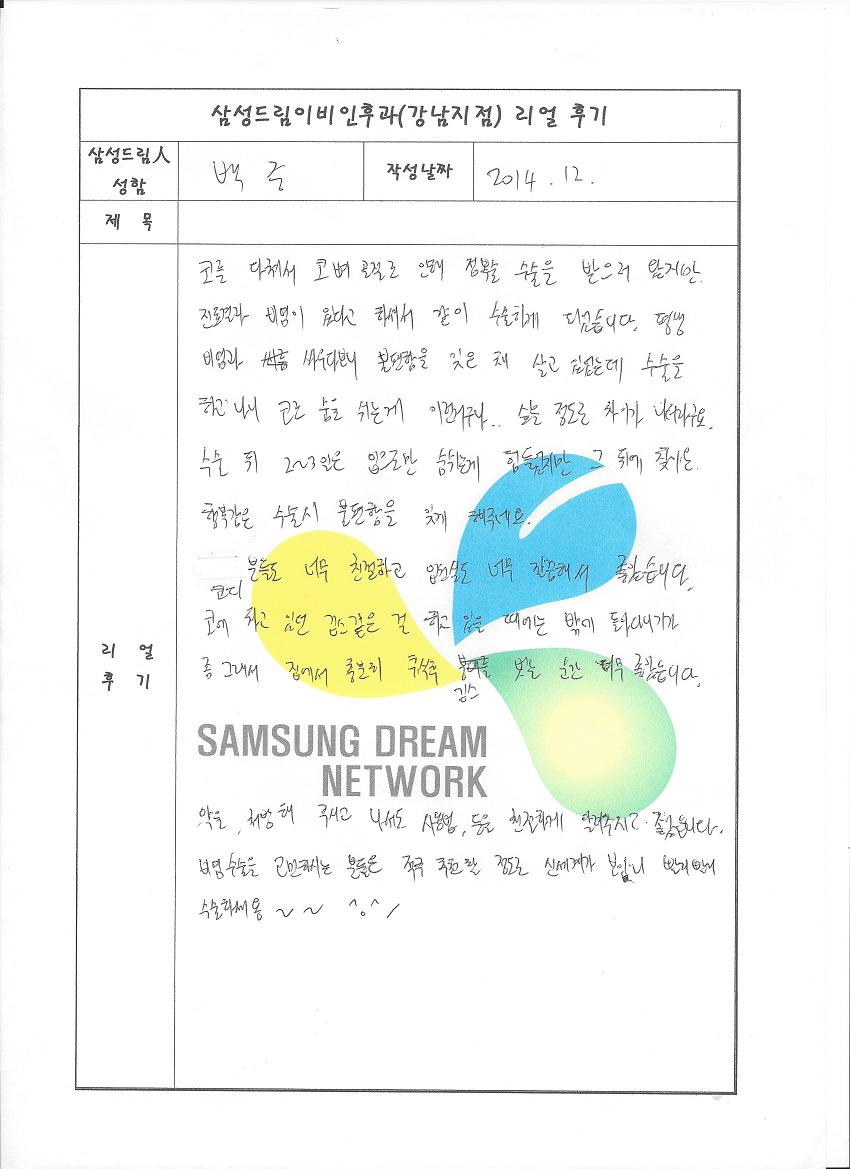 삼성드림이비인후과(강남지점) 리얼 후기
삼성드림人 성함
백 준
작성날짜
2014. 12.
제 목
리 얼 후 기
코를 다쳐서 코뼈 골절로 인해 정복술 수술을 받으러 왔지만.
진료결과 비염이 있다고 하셔서 같이 수술하게 되었습니다. 평생
비염과 싸우다보니 불편함을 잊은 채 살고 있었는데 수술을
하고나니 코로 숨을 쉬는게 이런거구나.. 싶을 정도로 차이가 나더라구요.
수술 뒤 2~3일은 입으로만 숨쉬는게 힘들었지만 그 뒤에 찾아온
행복감은 수술시 불편함을 잊게 해주네요.
분들도 너무 친절하고 입원실도 너무 깔끔해서 좋았습니다.
코디
코에 하고 있던 깁스같은 걸 하고 있을 때에는 밖에 돌아다니기가
좀 그래서 집에서 충분히 휴식후 붕대를 벗는 순간 너무 좋았습니다.
깁스
SAMSUNG DREAM
NETWORK
약을 처방해 주시고 나서도 사용법, 등을 친절하게 알려주시고 좋았습니다.
비염수술을 고민하시는 분들은 적극 추천할 정도로 신세계가 보입니 빨리빨리
수술하세용 ~ ~ ^o^/